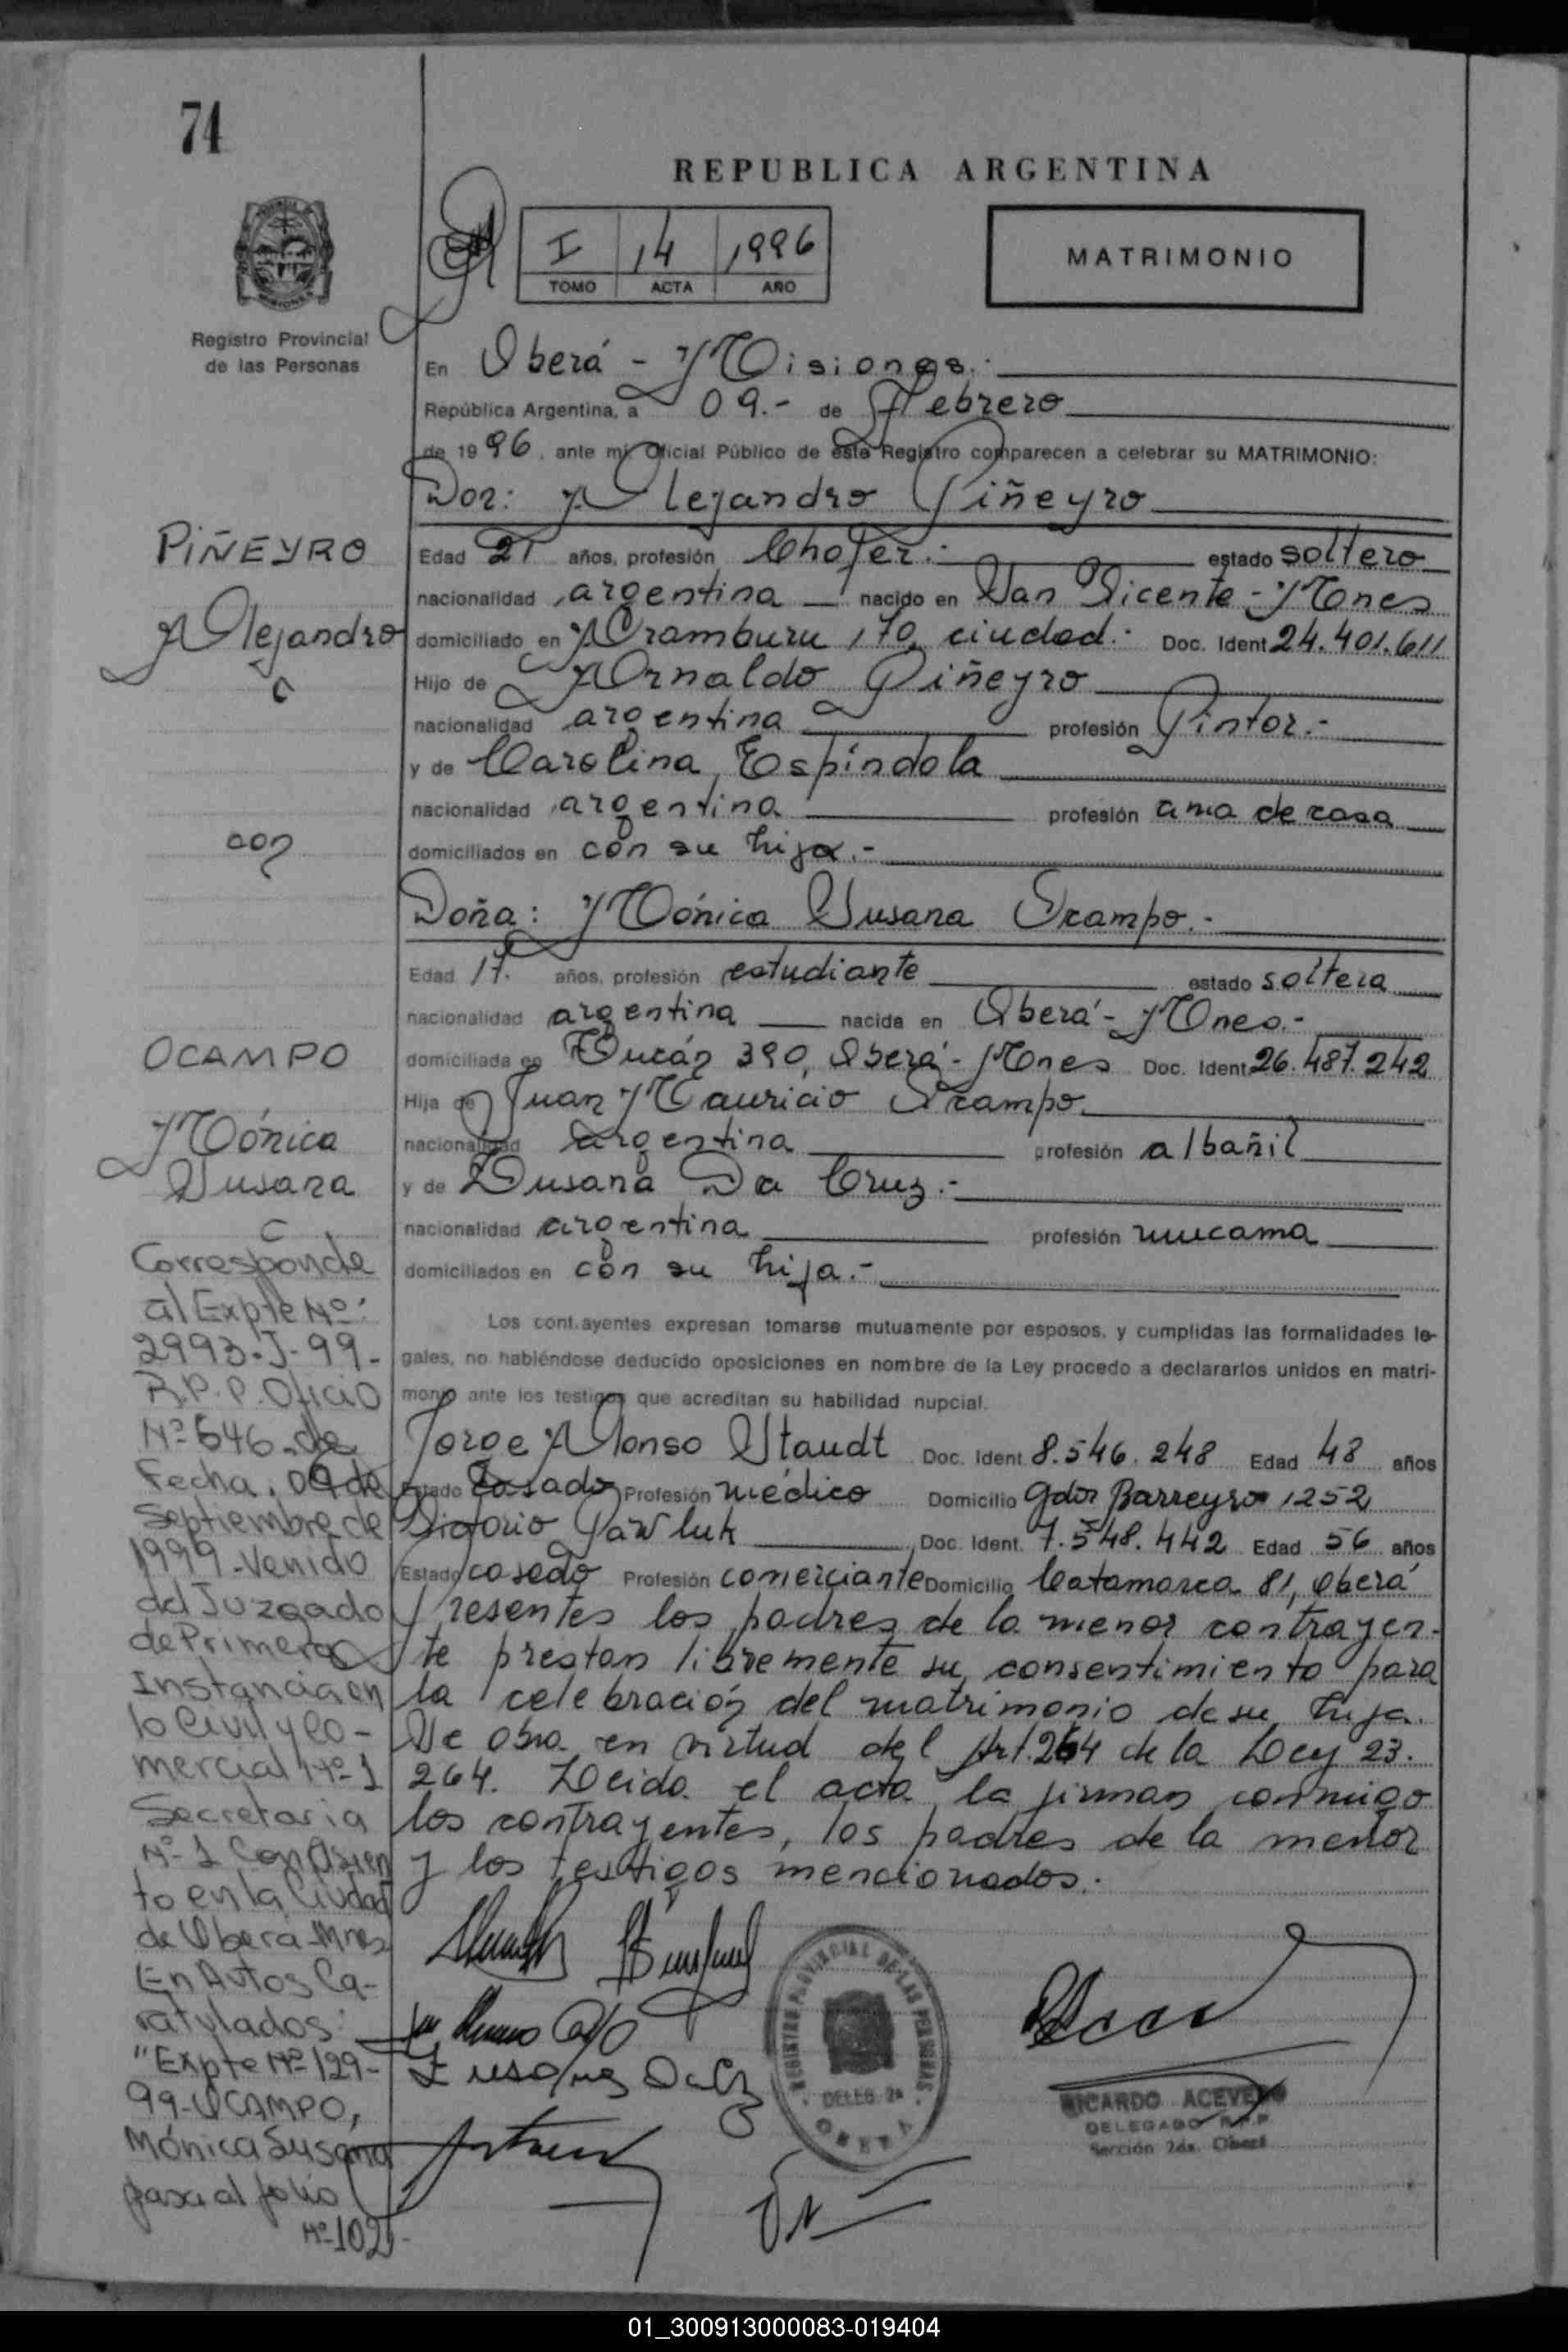 74
REPUBLICA ARGENTINA
I 14 1996
TOMO ACTA AÑO
MATRIMONIO
Registro Provincial
de las Personas
En Oberá - Misiones.-
República Argentina, a 09.- de Febrero
de 1996, ante mi, Oficial Público de este Registro comparecen a celebrar su MATRIMONIO:
Don: Alejandro Piñeyro
Edad 21 años, profesión Chofer.- estado soltero
nacionalidad argentina nacido en San Vicente - Mnes
domiciliado en Aramburu 170, ciudad.- Doc. Ident 24.401.611
Hijo de Arnaldo Piñeyro
nacionalidad argentina profesión Pintor.-
y de Carolina Espíndola
nacionalidad argentina profesión ama de casa
domiciliados en con su hija.-
Doña: Mónica Susana Ocampo.-
Edad 17. años, profesión estudiante estado soltera
nacionalidad argentina nacida en Oberá - Mnes.-
domiciliada en 390, Oberá - Mnes Doc. Ident. 26.487.242
Hija de Juan Mauricio Ocampo
nacionalidad argentina profesión albañil
y de Zusana Da Cruz.-
nacionalidad argentina profesión mucama
domiciliados en con su hija.-
Los contrayentes expresan tomarse mutuamente por esposos, y cumplidas las formalidades le-
gales, no habiéndose deducido oposiciones en nombre de la Ley procedo a declararlos unidos en matri-
monio ante los testigos que acreditan su habilidad nupcial.
Jorge Alonso Staudt Doc. Ident. 8.546.248 Edad 48 años
Estado Casado Profesión médico Domicilio Gdor Barreyro 1252
Pawluk Doc. Ident. 7.548.442 Edad 56 años
Estado casado Profesión comerciante Domicilio Catamarca 81, Oberá
Presentes los padres de la menor contrayen-
te prestan libremente su consentimiento para
la celebración del matrimonio de su hija.
Se obra en virtud del Art. 264 de la Ley 23.
264. Leida el acta la firman conmigo
los contrayentes, los padres de la menor
y los testigos mencionados.-
REGISTRO PROVINCIAL DE LAS PERSONAS
DELEG. 2a
OBERA
RICARDO ACEVEDO
DELEGADO R.P.P.
Sección 2da. Oberá
PIÑEYRO
Alejandro
c
con
OCAMPO
Mónica
Susana
C
Corresponde
al Expte Nº:
2993-J-99-
R.P.P. Oficio
Nº 646 de
Fecha: 09 de
Septiembre de
1999 - Venido
del Juzgado
de Primera
Instancia en
lo Civil y Co-
mercial Nº 1
Secretaria
Nº 1 Con Asien
to en la Ciudad
de Oberá - Mnes
En Autos Ca-
ratulados:
"Expte Nº 129-
99-OCAMPO,
Mónica Susana
pasa al folio
Nº 102.-
01_300913000083-019404